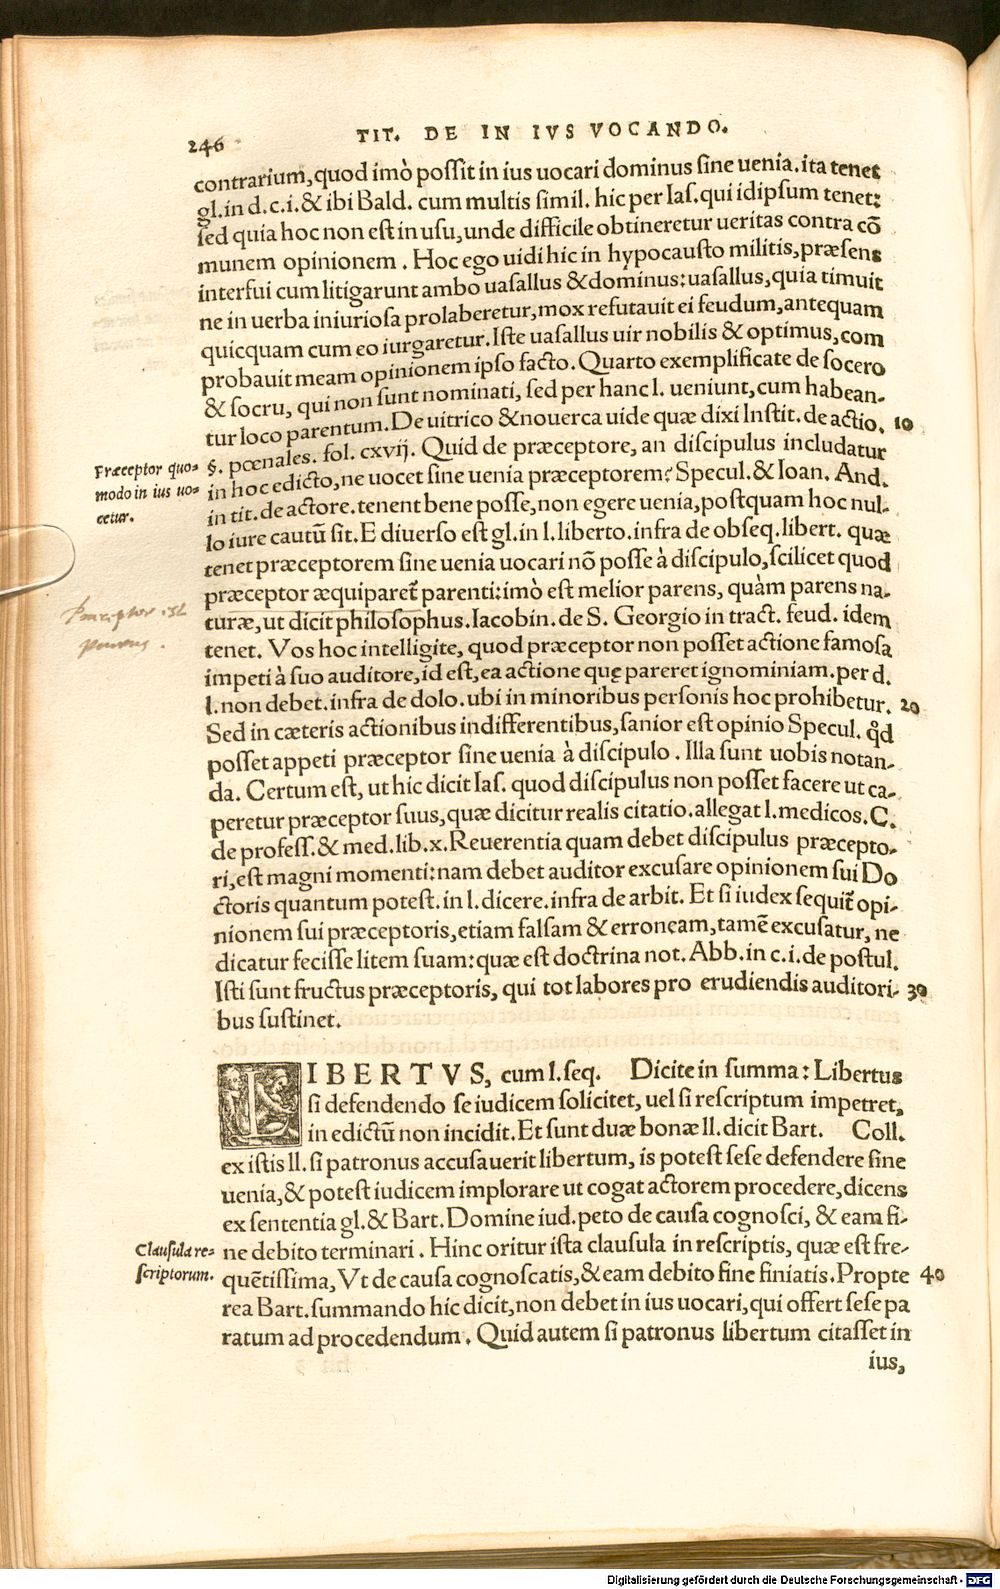 246
TIT. DE IN IVS VOCANDO.
contrarium, quod imò poſſit in ius uocari dominus ſine uenia. ita tenet
gl. in d. c. i. & ibi Bald. cum multis ſimil. hic per Iaſ. qui idipſum tenet:
ſed quia hoc non eſt in uſu, unde difficile obtineretur ueritas contra cō
munem opinionem. Hoc ego uidi hic in hypocauſto militis, præſens
interfui cum litigarunt ambo uaſallus & dominus: uaſallus, quia timuit
ne in uerba iniurioſa prolaberetur, mox refutauit ei feudum, antequam
quicquam cum eo iurgaretur. Iſte uaſallus uir nobilis & optimus, com
probauit meam opinionem ipſo facto. Quarto exemplificate de ſocero
& ſocru, qui non ſunt nominati, ſed per hanc l. ueniunt, cum habean-
tur loco parentum. De uitrico & nouerca uide quæ dixi Inſtit. de actio. 10
Præceptor quo= §. pœnales. fol. cxvij. Quid de præceptore, an diſcipulus includatur
modo in ius uo= in hoc edicto, ne uocet ſine uenia præceptorem? Specul. & Ioan. And.
cetur. in tit. de actore. tenent bene poſſe, non egere uenia, poſtquam hoc nul-
lo iure cautū ſit. E diuerſo eſt gl. in l. liberto. infra de obſeq. libert. quæ
tenet præceptorem ſine uenia uocari nō poſſe à diſcipulo, ſcilicet quod
præceptor æquiparet̃ parenti: imò eſt melior parens, quàm parens na-
Præceptor est turæ, ut dicit philoſophus. Iacobin. de S. Georgio in tract. feud. idem
parens. tenet. Vos hoc intelligite, quod præceptor non poſſet actione famoſa
impeti à ſuo auditore, id eſt, ea actione quę pareret ignominiam. per d.
l. non debet. infra de dolo. ubi in minoribus perſonis hoc prohibetur. 20
Sed in cæteris actionibus indifferentibus, ſanior eſt opinio Specul. q̊d
poſſet appeti præceptor ſine uenia à diſcipulo. Illa ſunt uobis notan-
da. Certum eſt, ut hic dicit Iaſ. quod diſcipulus non poſſet facere ut ca-
peretur præceptor ſuus, quæ dicitur realis citatio. allegat l. medicos. C.
de profeſſ. & med. lib. x. Reuerentia quam debet diſcipulus præcepto-
ri, eſt magni momenti: nam debet auditor excuſare opinionem ſui Do
ctoris quantum poteſt. in l. dicere. infra de arbit. Et ſi iudex ſequit̃ opi-
nionem ſui præceptoris, etiam falſam & erroneam, tamē excuſatur, ne
dicatur feciſſe litem ſuam: quæ eſt doctrina not. Abb. in c. i. de poſtul.
Iſti ſunt fructus præceptoris, qui tot labores pro erudiendis auditori- 30
bus ſuſtinet.
LIBERTVS, cum l. ſeq. Dicite in ſumma: Libertus
ſi defendendo ſe iudicem ſolicitet, uel ſi reſcriptum impetret,
in edictū non incidit. Et ſunt duæ bonæ ll. dicit Bart. Coll.
ex iſtis ll. ſi patronus accuſauerit libertum, is poteſt ſeſe defendere ſine
uenia, & poteſt iudicem implorare ut cogat actorem procedere, dicens
ex ſententia gl. & Bart. Domine iud. peto de cauſa cognoſci, & eam fi-
Clauſula re= ne debito terminari. Hinc oritur iſta clauſula in reſcriptis, quæ eſt fre-
ſcriptorum. quētiſſima, Vt de cauſa cognoſcatis, & eam debito fine finiatis. Propte 40
rea Bart. ſummando hic dicit, non debet in ius uocari, qui offert ſeſe pa
ratum ad procedendum. Quid autem ſi patronus libertum citaſſet in
ius,
Digitalisierung gefördert durch die Deutsche Forschungsgemeinschaft - DFG